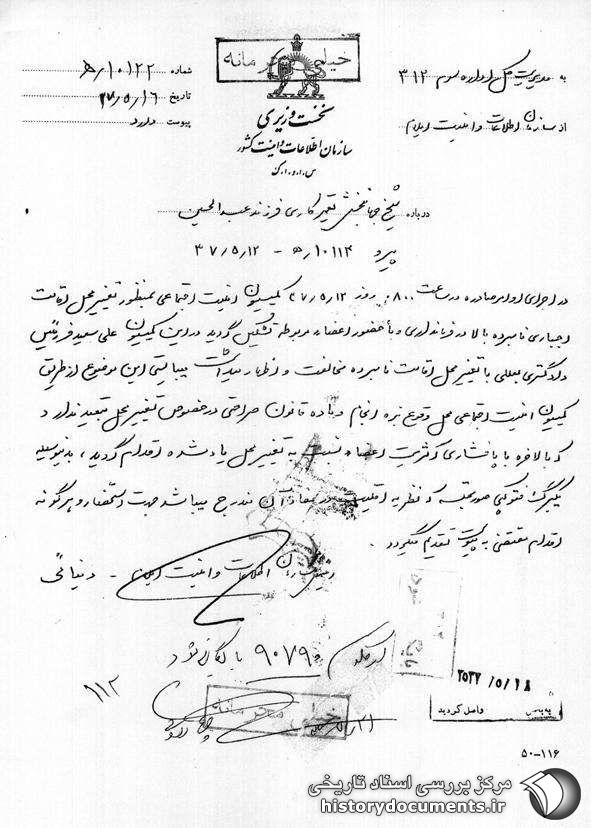 خیلی محرمانه
به مدیریت کل اداره سوم ۳۱۲
شماره ۱۰۱۲۲/ه‍
از سازمان اطلاعات و امنیت ایلام
تاریخ ۳۷/۵/۱۶
پیوست دارد
نخست وزیری
سازمان اطلاعات و امنیت کشور
س.ا.و.ا.ک
درباره شیخ جهانبخش تعمیرکاری فرزند عبدالحسین
پیرو ۱۰۱۱۴/ه‍ - ۳۷/۵/۱۲
در اجرای اوامر صادره در ساعت ۸۰۰ روز ۳۷/۵/۱۲ کمیسیون امنیت اجتماعی بمنظور تغییر محل اقامت
اجباری نامبرده بالا در فرمانداری و با حضور اعضاء مربوطه تشکیل گردید در این کمیسیون علی سعید فر رئیس
دادگستری محل با تغییر محل اقامت نامبرده مخالفت و اظهار میداشت میبایستی این موضوع از طریق
کمیسیون امنیت اجتماعی محل وقوع بزه انجام و ماده قانون صراحتی در خصوص تغییر محل تبعید ندارد و
که بالاخره با پافشاری اکثریت اعضاء نسبت به تغییر محل یاد شده اقدام گردید، بدینوسیله
یکبرگ فتوکپی صورتجلسه که نظریه اقلیت در مفاد آن مندرج میباشد جهت استحضار و هرگونه
اقدام مقتضی به پیوست تقدیم میگردد.
رئیس سازمان اطلاعات و امنیت ایلام - دنیائی
۹۰۷۹۰ بایگانی شود
۱۱۲
۲۵۳۷/۵/۱۸
واصل گردید
خیلی محرمانه
۵۰-۱۱۶
مرکز بررسی اسناد تاریخی
historydocuments.ir